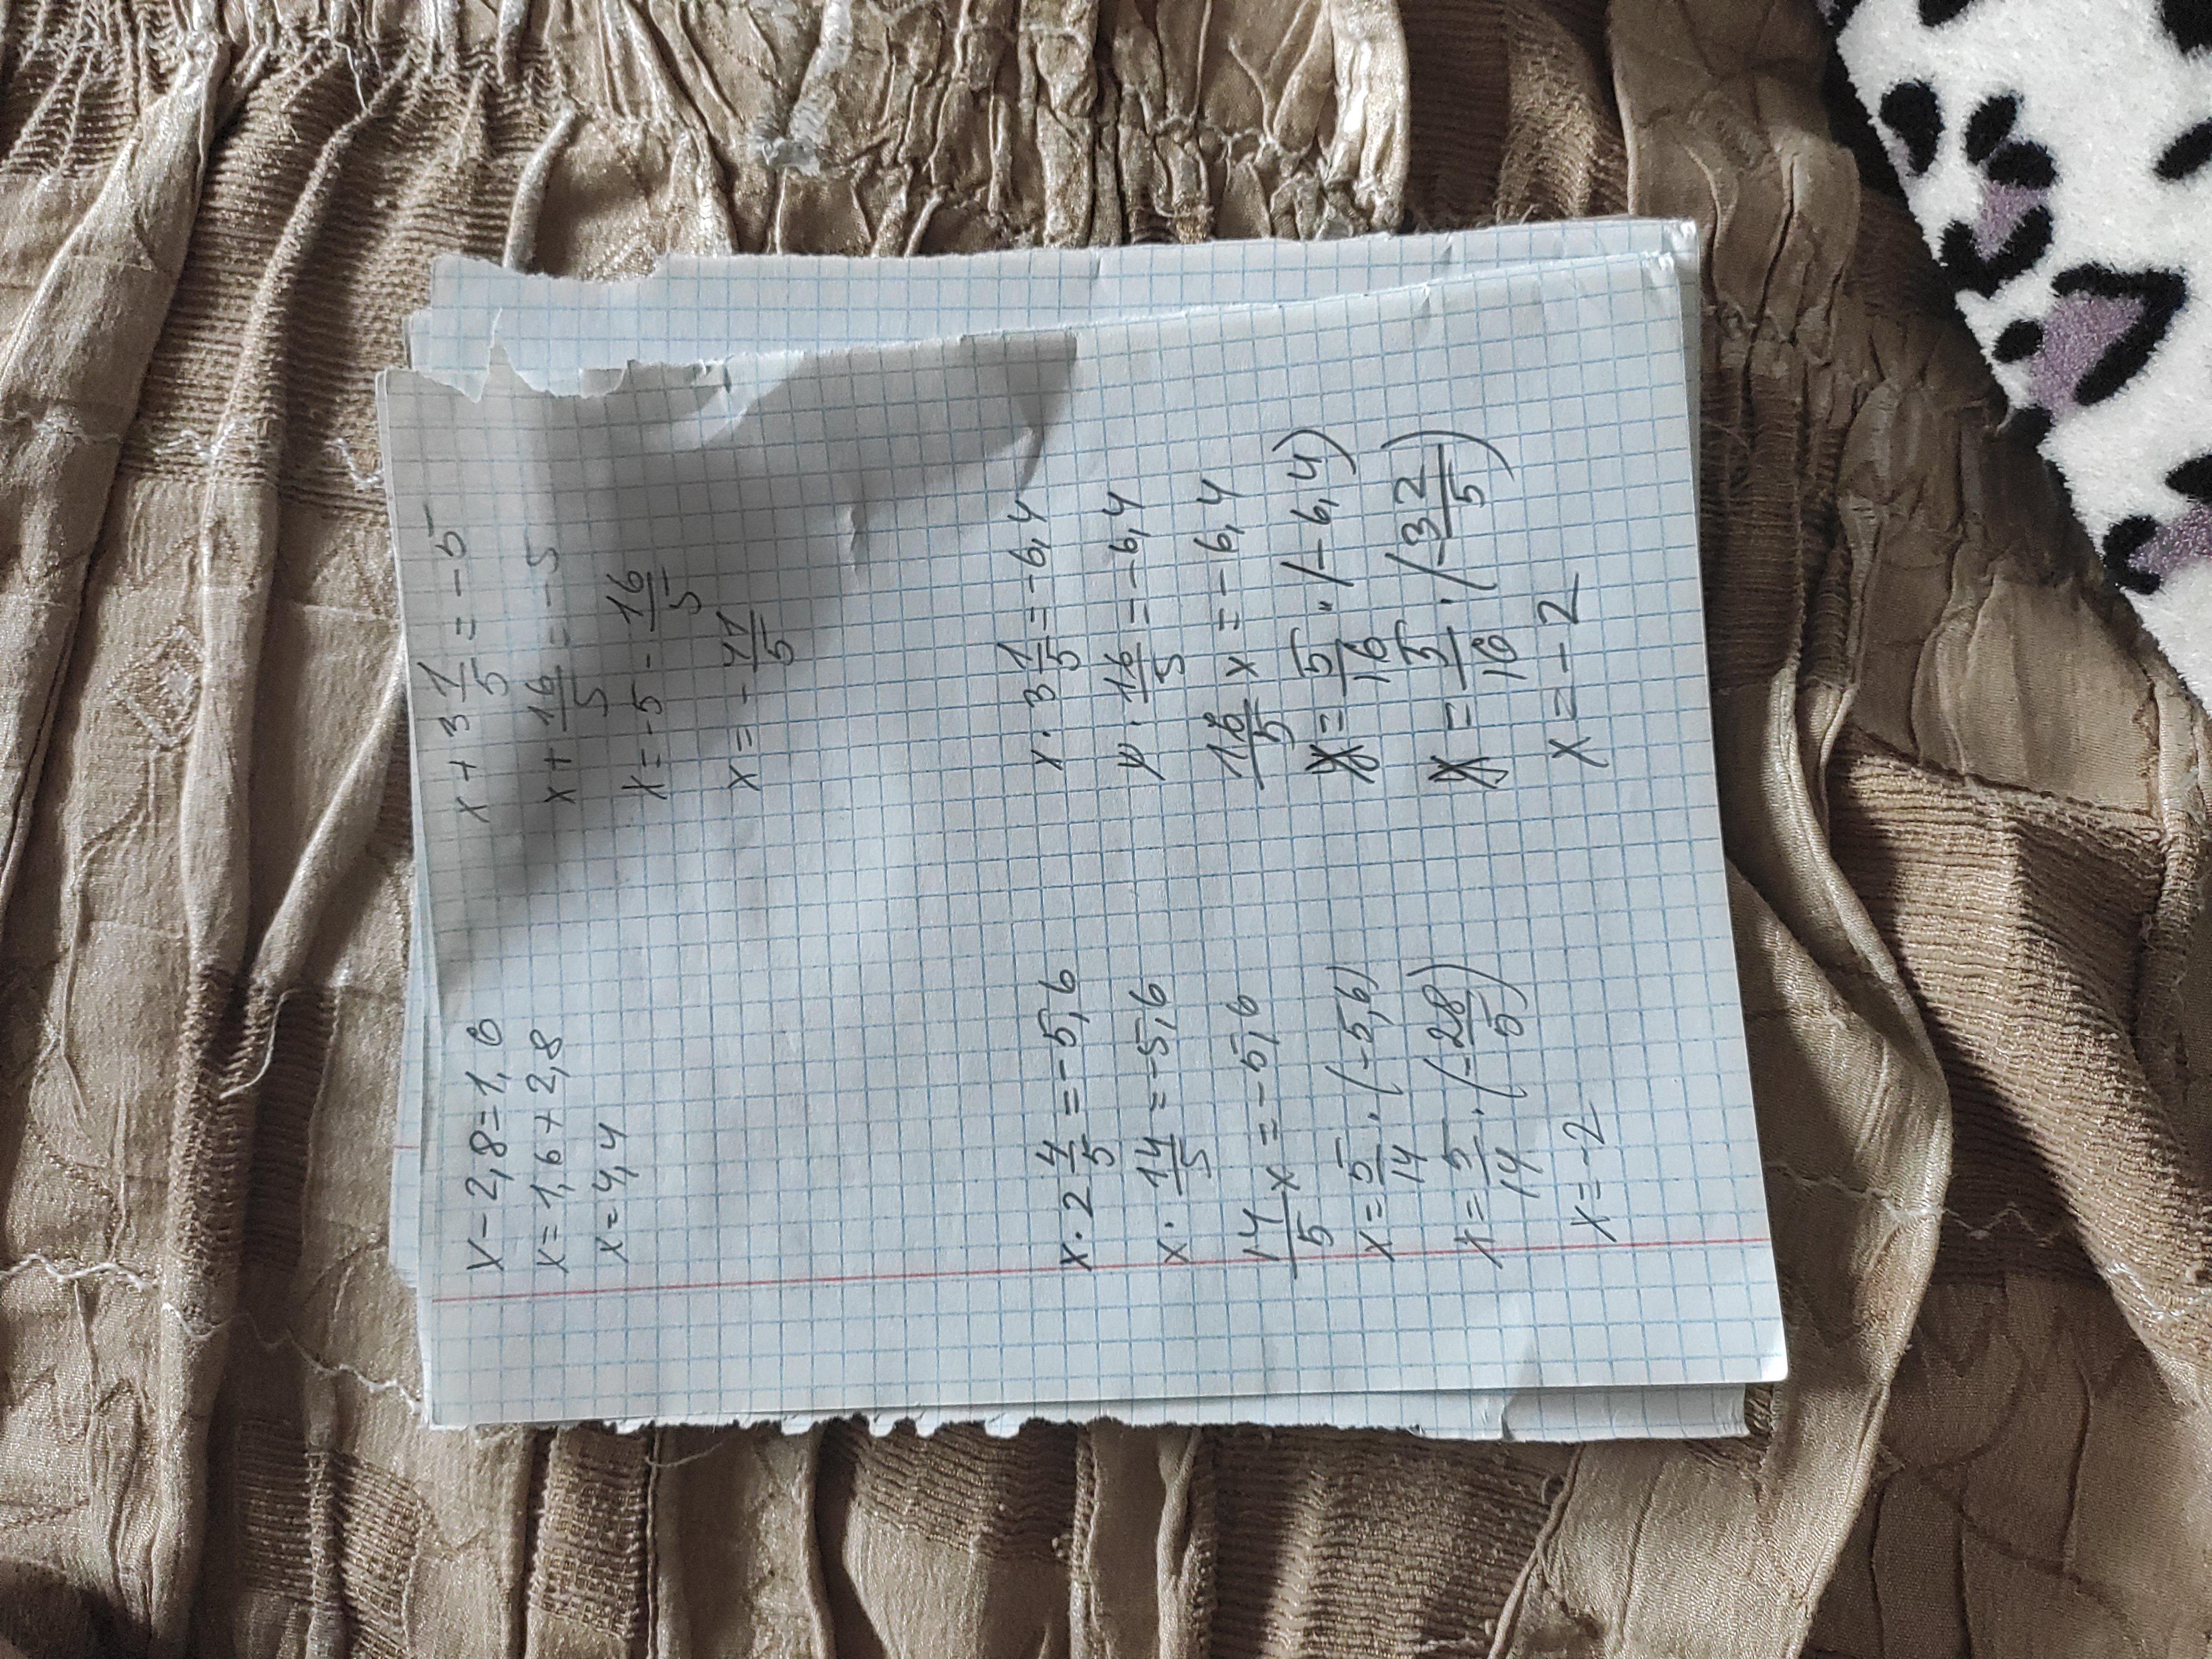 x - 2,8 = 1,6
x = 1,6 + 2,8
x = 4,4
x + 3 1/5 = - 5
x + 16/5 = - 5
x = - 5 - 16/5
x = - 41/5
x · 2 4/5 = - 5,6
x · 14/5 = - 5,6
14/5 x = - 5,6
x = 5/14 · (- 5,6)
x = 5/14 · (- 28/5)
x = - 2
x · 3 1/5 = - 6,4
x · 16/5 = - 6,4
16/5 x = - 6,4
x = 5/16 · (- 6,4)
x = 5/16 · (- 32/5)
x = - 2